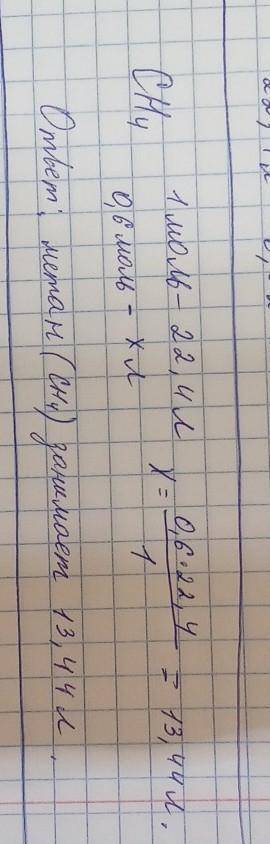 CH4 1 моль - 22,4 л
0,6 моль - x л x = 0,6·22,4 / 1 = 13,44 л.
Ответ: метан (CH4) занимает 13,44 л.